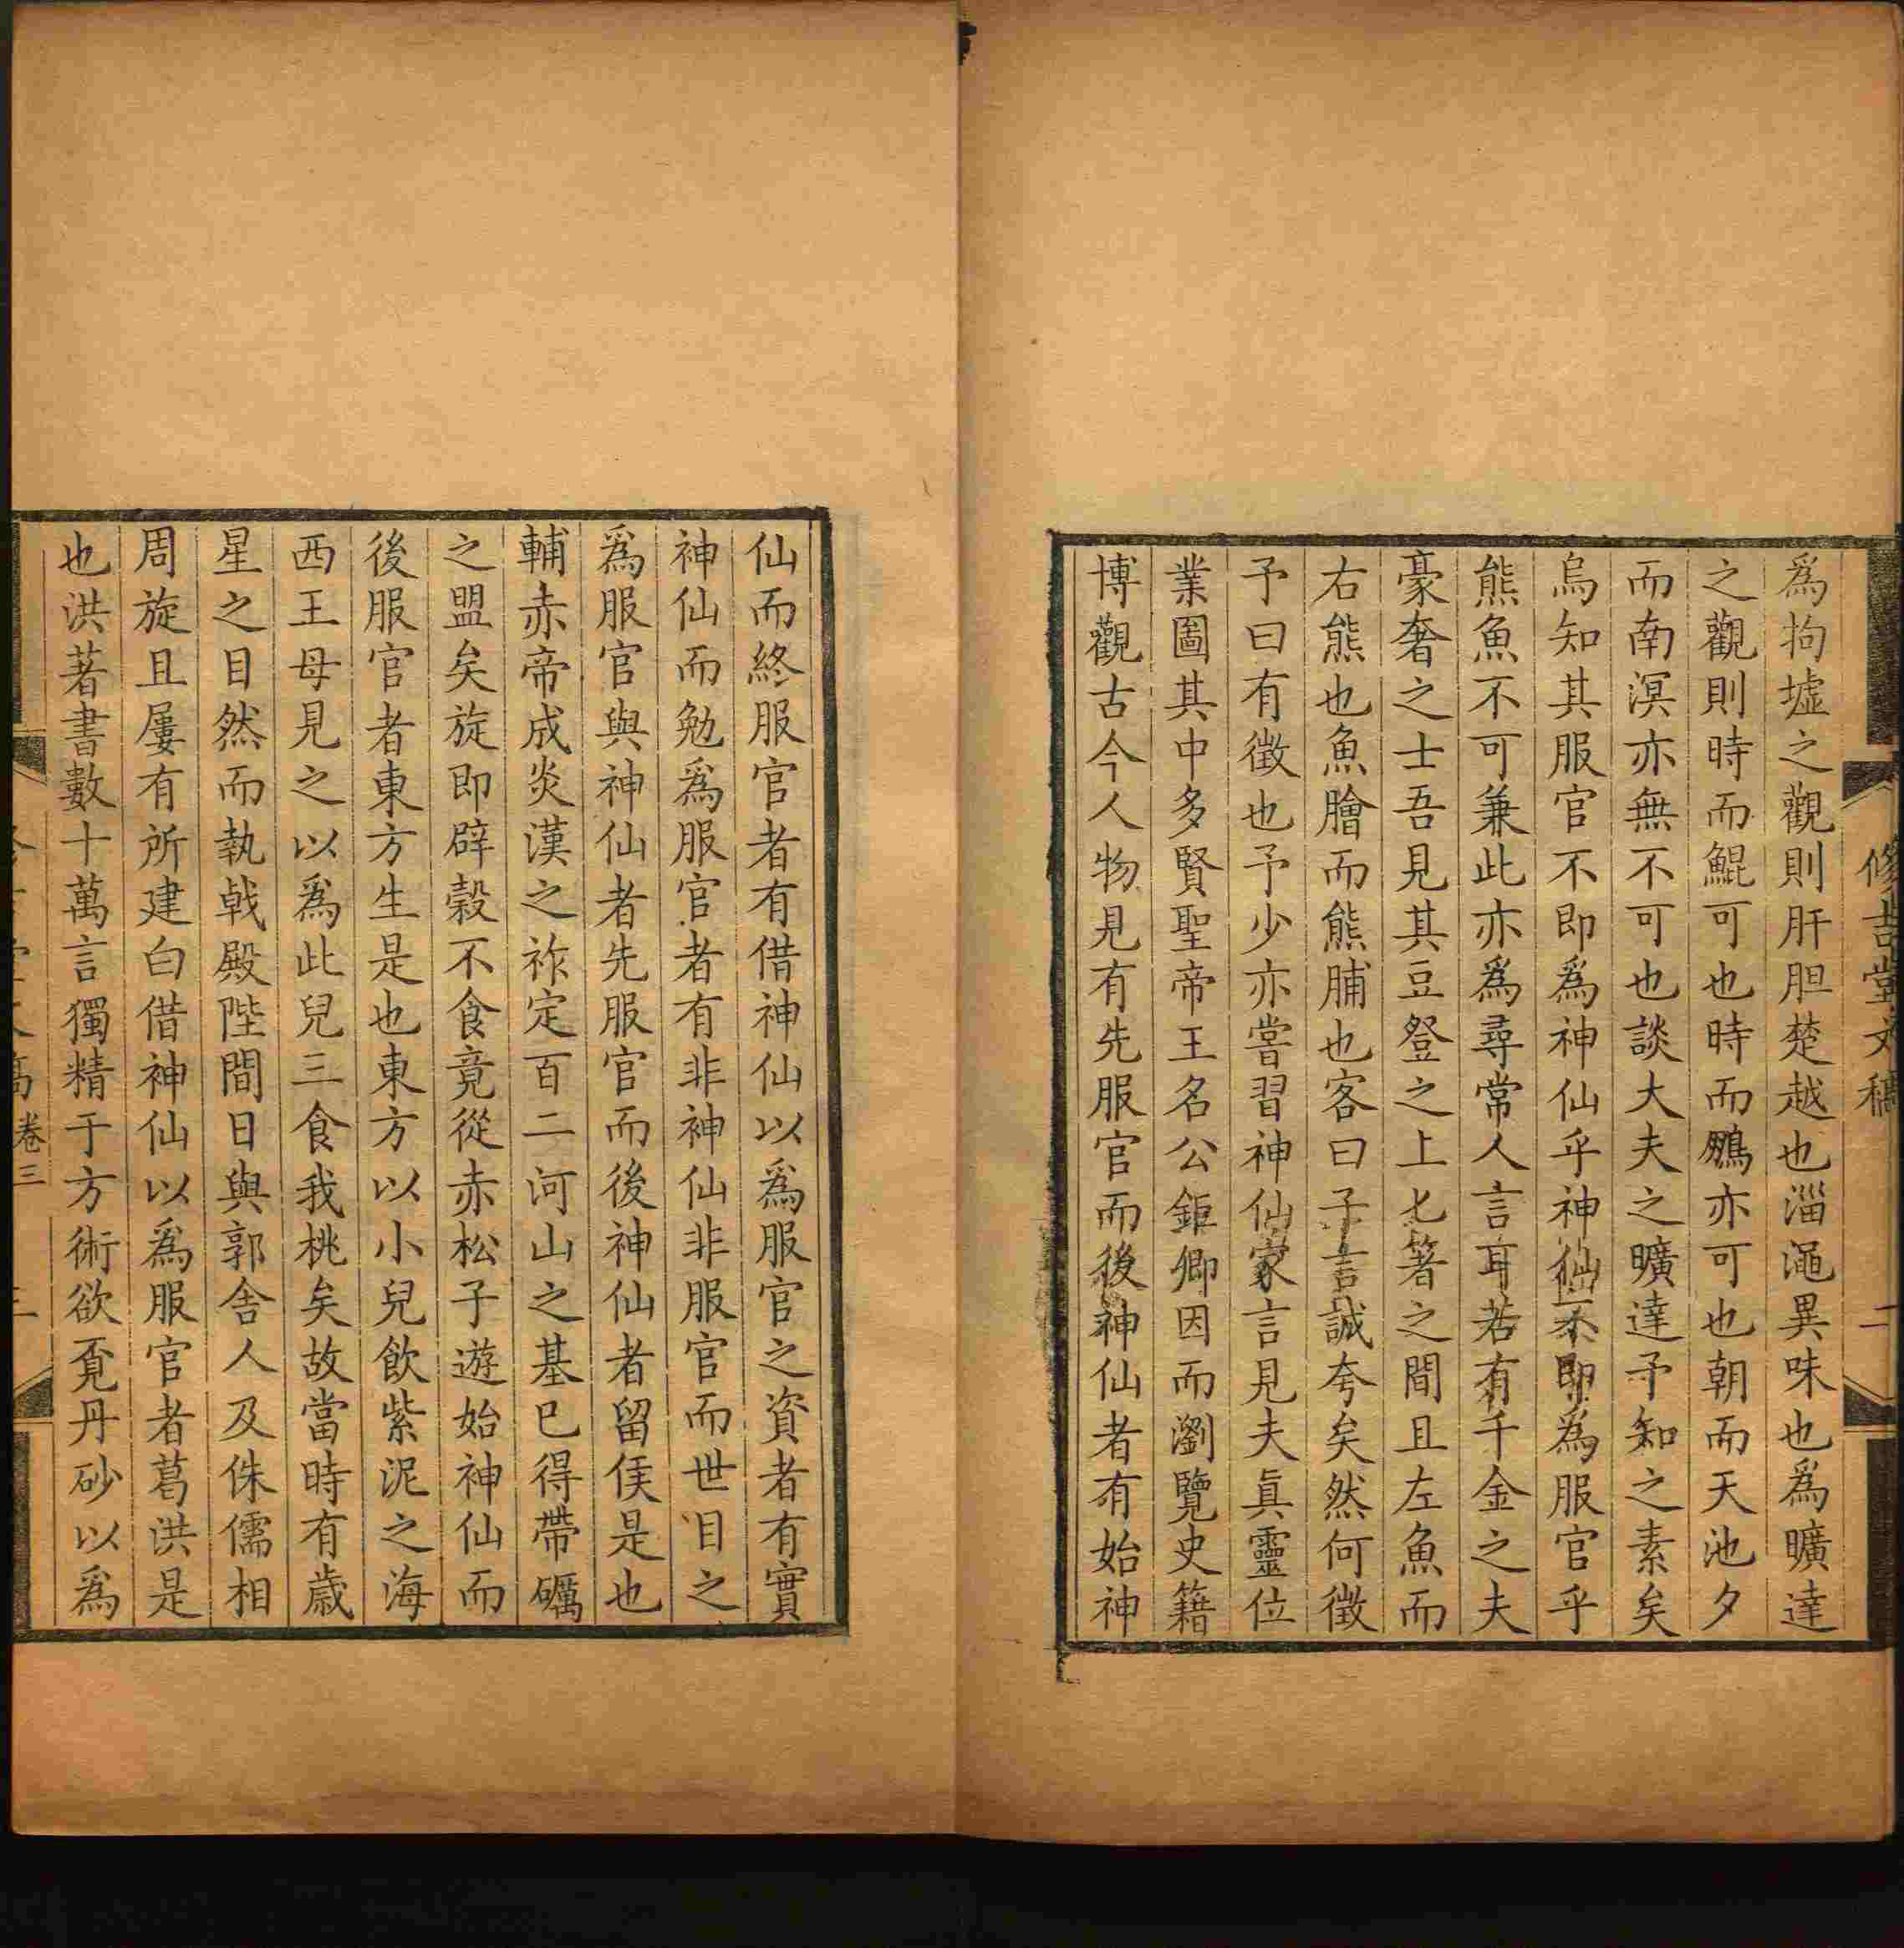 修吉堂文稿 二
爲拘墟之觀則肝胆楚越也淄澠異味也爲曠達
之觀則時而鯤可也時而鵬亦可也朝而天池夕
而南溟亦無不可也談大夫之曠達予知之素矣
烏知其服官不即爲神仙乎神仙不即爲服官乎
熊魚不可兼此亦爲尋常人言耳若有千金之夫
豪奢之士吾見其豆登之上匕箸之間且左魚而
右熊也魚膾而熊脯也客曰子言誠夸矣然何徵
予曰有徵也予少亦嘗習神仙家言見夫眞靈位
業圖其中多賢聖帝王名公鉅卿因而瀏覽史籍
博觀古今人物見有先服官而後神仙者有始神
仙而終服官者有借神仙以爲服官之資者有實
神仙而勉爲服官者有非神仙非服官而世目之
爲服官與神仙者先服官而後神仙者留侯是也
輔赤帝成炎漢之祚定百二河山之基已得帶礪
之盟矣旋即辟穀不食竟從赤松子遊始神仙而
後服官者東方生是也東方以小兒飲紫泥之海
西王母見之以爲此兒三食我桃矣故當時有歲
星之目然而執戟殿陛間日與郭舍人及侏儒相
周旋且屢有所建白借神仙以爲服官者葛洪是
也洪著書數十萬言獨精于方術欲覓丹砂以爲
卷三